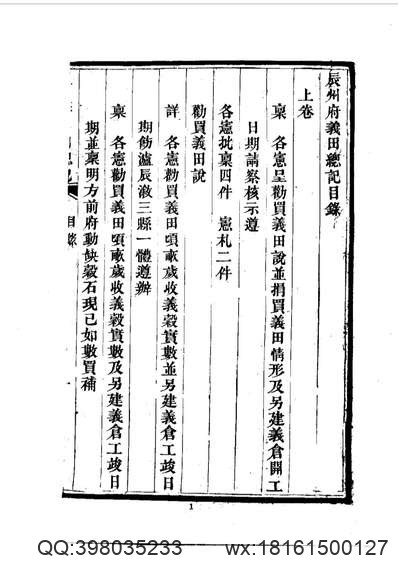 辰州府義田總記目錄
上卷
稟 各憲呈勸買義田說並捐買義田情形及另建義倉開工
日期請察核示遵
各憲批稟四件 憲札二件
勸買義田說
詳 各憲勸買義田頃畝歲收義穀實數並另建義倉工竣日
期飭瀘辰漵三縣一體遵辦
稟 各憲勸買義田頃畝歲收義穀實數及另建義倉工竣日
期並稟明方前府動缺穀石現已如數買補
目錄
1
QQ:398035233 wx:18161500127